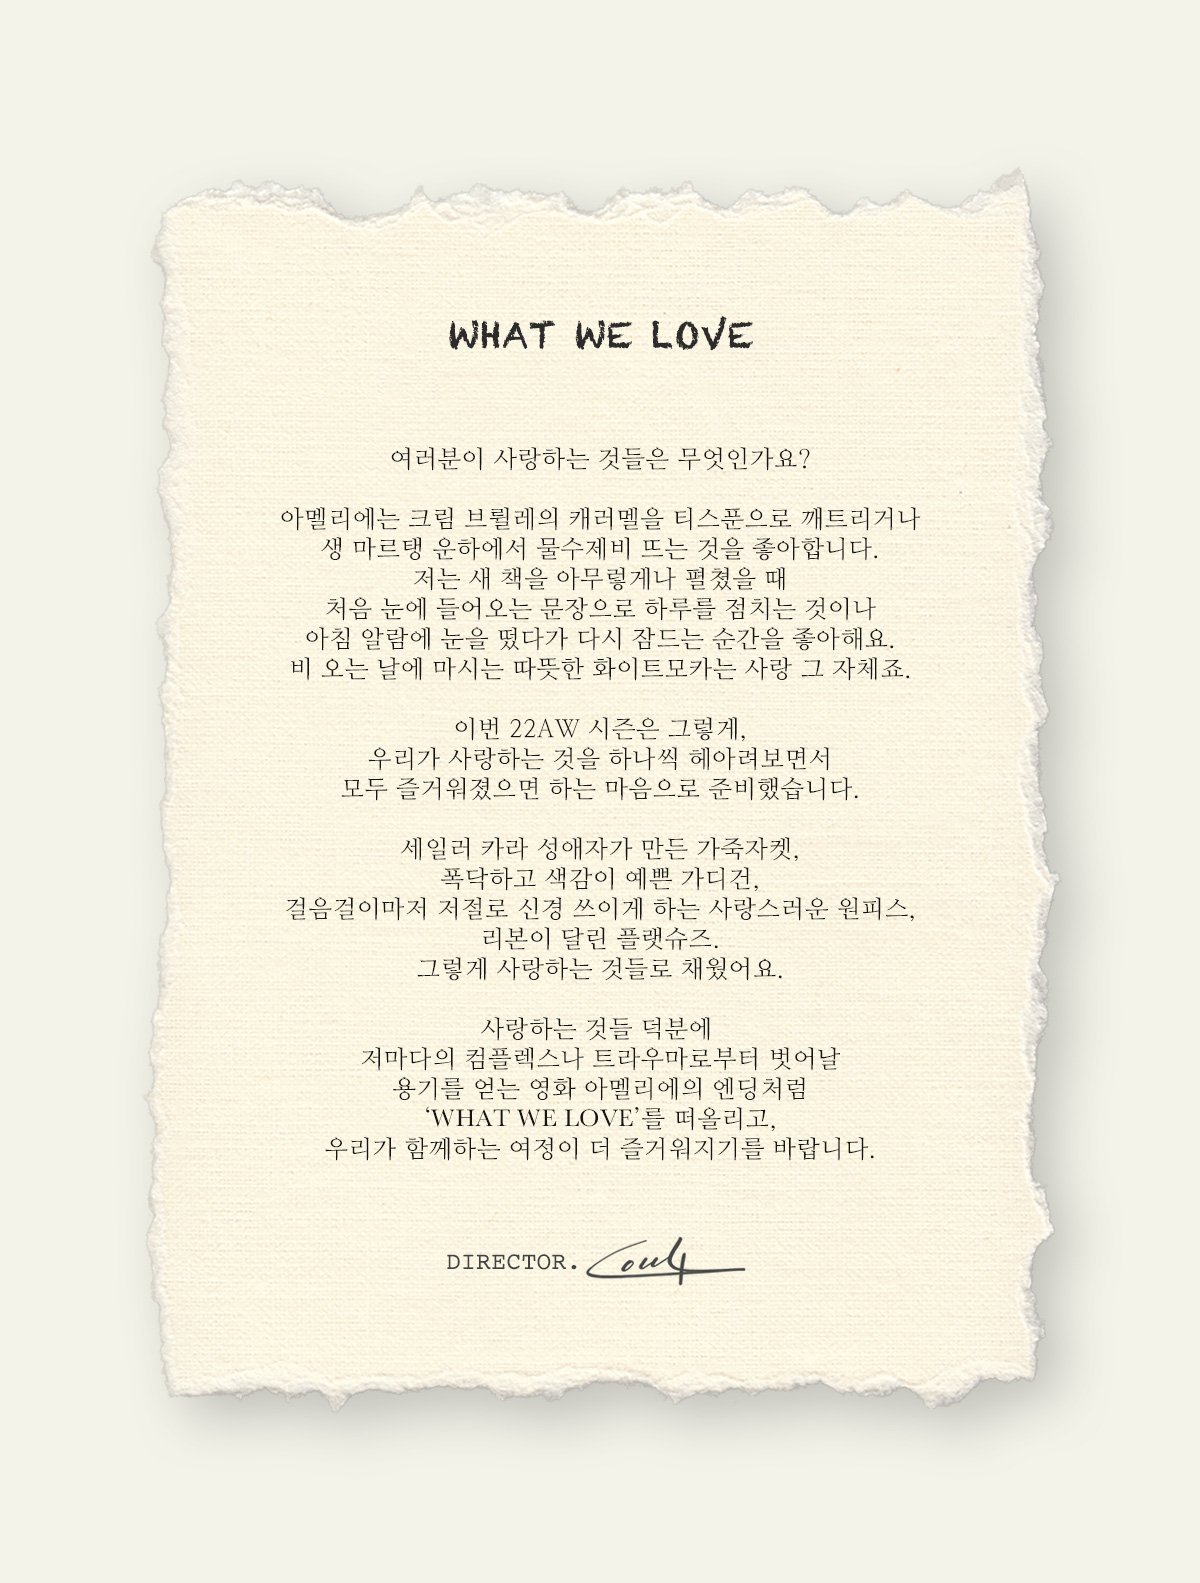 WHAT WE LOVE
여러분이 사랑하는 것들은 무엇인가요?
아멜리에는 크림 브륄레의 캐러멜을 티스푼으로 깨트리거나
생 마르탱 운하에서 물수제비 뜨는 것을 좋아합니다.
저는 새 책을 아무렇게나 펼쳤을 때
처음 눈에 들어오는 문장으로 하루를 점치는 것이나
아침 알람에 눈을 떴다가 다시 잠드는 순간을 좋아해요.
비 오는 날에 마시는 따뜻한 화이트모카는 사랑 그 자체죠.
이번 22AW 시즌은 그렇게,
우리가 사랑하는 것을 하나씩 헤아려보면서
모두 즐거워졌으면 하는 마음으로 준비했습니다.
세일러 카라 성애자가 만든 가죽자켓,
폭닥하고 색감이 예쁜 가디건,
걸음걸이마저 저절로 신경 쓰이게 하는 사랑스러운 원피스,
리본이 달린 플랫슈즈.
그렇게 사랑하는 것들로 채웠어요.
사랑하는 것들 덕분에
저마다의 컴플렉스나 트라우마로부터 벗어날
용기를 얻는 영화 아멜리에의 엔딩처럼
‘WHAT WE LOVE’를 떠올리고,
우리가 함께하는 여정이 더 즐거워지기를 바랍니다.
DIRECTOR.